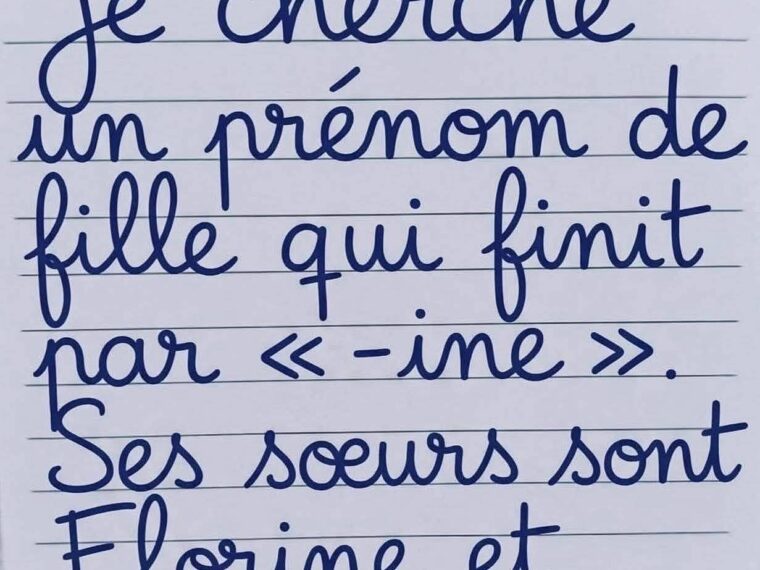 Je cherche
un prénom de
fille qui finit
par « -ine ».
Ses sœurs sont
Florine et